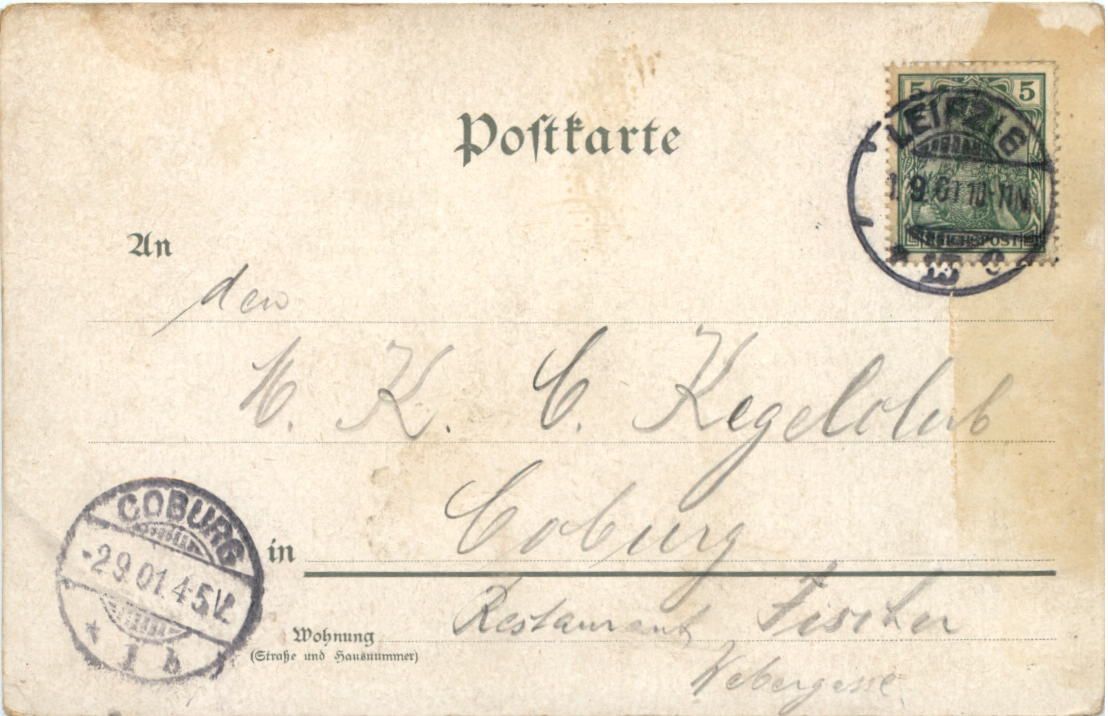 Postkarte
5 5
LEIPZIG
1.9.01 10-11N.
REICHSPOST
An
den
K. C. Kegelclub
COBURG
-2.9.01.4-5V.
* 1 b
in Coburg
Wohnung Restaurant Fischer
(Straße und Hausnummer)
Webergasse